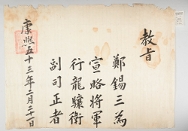 教旨
鄭錫三為
宣略將軍
行龍驤衛
副司正者
康熙五十三年十二月二十日